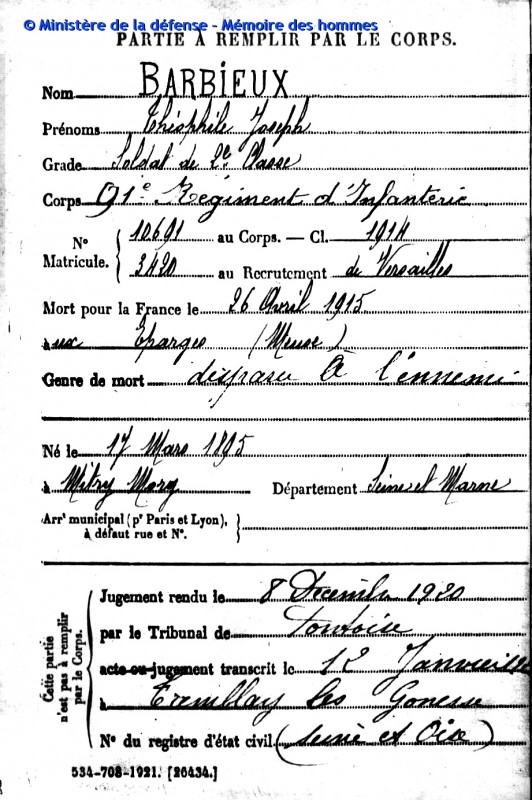 © Ministère de la défense - Mémoire des hommes
PARTIE À REMPLIR PAR LE CORPS.
Nom BARBIEUX
Prénoms Théophile Joseph
Grade Soldat de 2e Classe
Corps 91e Régiment d'Infanterie
N° Matricule. { 10691 au Corps. — Cl. 1914
3420 au Recrutement de Versailles
Mort pour la France le 26 Avril 1915
aux Eparges (Meuse)
Genre de mort disparu à l'ennemi
Né le 17 Mars 1895
à Mitry Mory Département Seine et Marne
Arrt municipal (pr Paris et Lyon),
à défaut rue et N°.
Cette partie n'est pas à remplir par le Corps.
Jugement rendu le 8 Décembre 1920
par le Tribunal de Pontoise
acte ou jugement transcrit le 12 Janvier
à Tremblay les Gonesse
N° du registre d'état civil (Seine et Oise)
534-708-1921. [26434.]